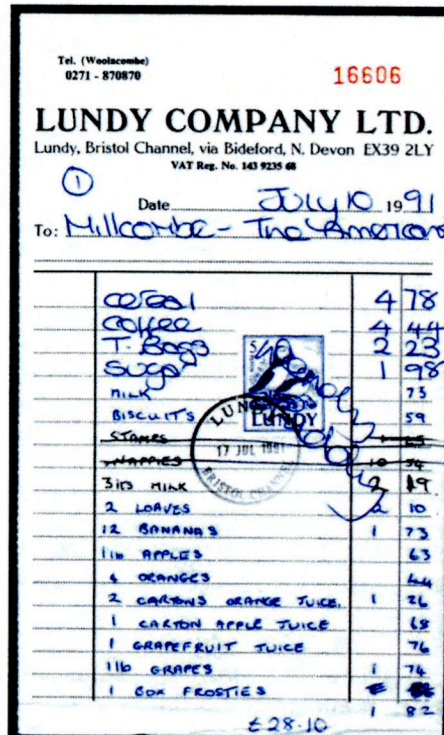 Tel. (Woolacombe)
0271 - 870870
16606
LUNDY COMPANY LTD.
Lundy, Bristol Channel, via Bideford, N. Devon EX39 2LY
VAT Reg. No. 143 9235 68
1
Date JULY 10 1991
To: Millcombe - The Americans
cereal 4 78
coffee 4 44
T. Bags 2 23
Sugar 1 98
MILK 73
BISCUITS 59
STAMPS
NAPPIES 10 54
3 PTS MILK 19
2 LOAVES 2 10
12 BANANAS 1 73
1 lb APPLES 63
4 ORANGES 44
2 CARTONS ORANGE JUICE. 1 26
1 CARTON APPLE JUICE 68
1 GRAPEFRUIT JUICE 76
1 lb GRAPES 1 74
1 BOX FROSTIES
1 82
£28-10
LUNDY
LUNDY
17 JUL 1991
BRISTOL CHANNEL